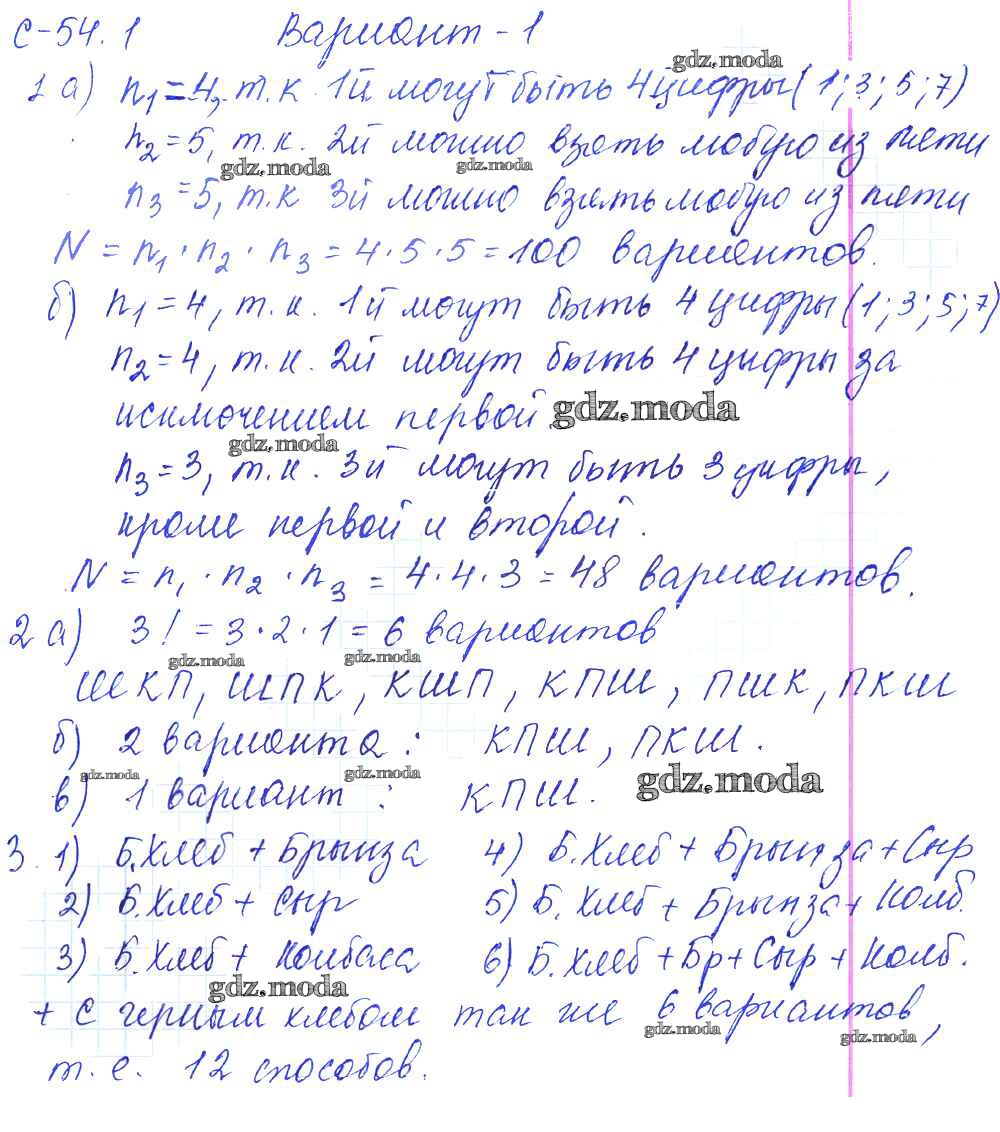 С-54.1 Вариант-1
gdz.moda
1 а) n1=4, т.к. 1й могут быть 4 цифры (1; 3; 5; 7)
n2=5, т.к. 2й можно взять любую из пяти
gdz.moda gdz.moda
n3=5, т.к 3й можно взять любую из пяти
N = n1 · n2 · n3 = 4·5·5=100 вариантов.
б) n1=4, т.к. 1й могут быть 4 цифры (1; 3; 5; 7)
n2=4, т.к. 2й могут быть 4 цифры за
исключением первой. gdz.moda
gdz.moda
n3=3, т.к. 3й могут быть 3 цифры,
кроме первой и второй.
N = n1 · n2 · n3 = 4·4·3=48 вариантов.
2 а) 3! = 3·2·1 = 6 вариантов
gdz.moda gdz.moda
ШКП, ШПК, КШП, КПШ, ПШК, ПКШ
б) 2 варианта: КПШ, ПКШ.
gdz.moda gdz.moda gdz.moda
в) 1 вариант: КПШ.
3. 1) Б.Хлеб + Брынза 4) Б.Хлеб + Брынза + Сыр
2) Б.Хлеб + Сыр 5) Б.Хлеб + Брынза + Колб.
3) Б.Хлеб + Колбаса 6) Б.Хлеб + Бр + Сыр + Колб.
gdz.moda
+ с черным хлебом так же 6 вариантов,
gdz.moda gdz.moda
т.е. 12 способов.